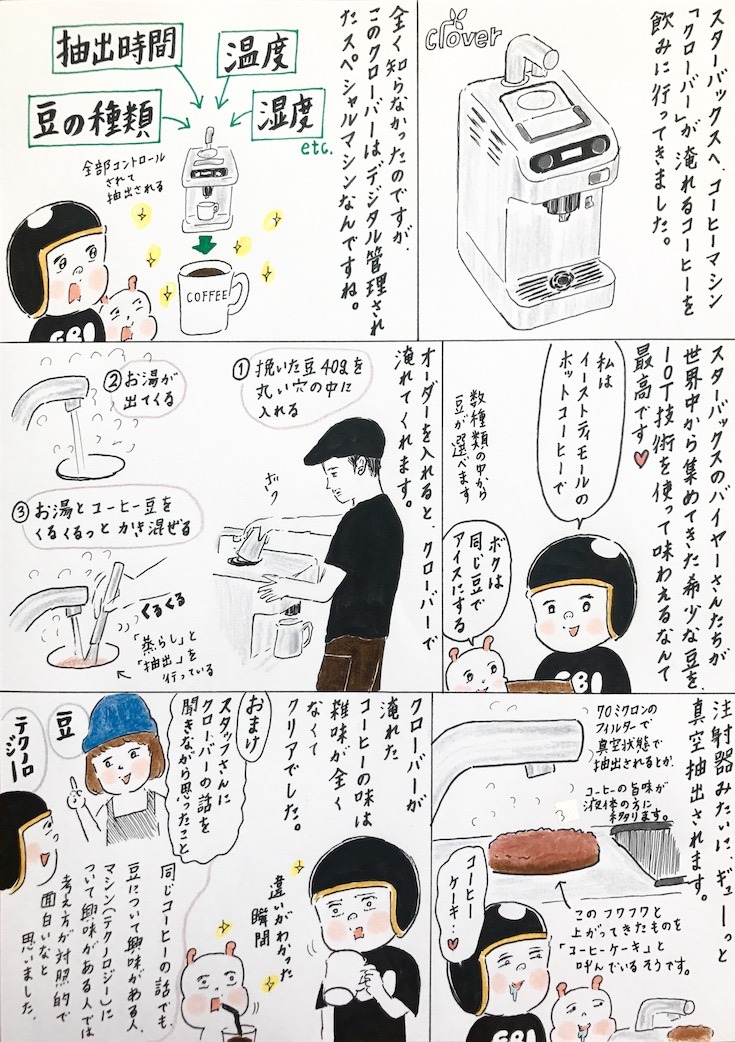 スターバックスへ、コーヒーマシン
「クローバー」が淹れるコーヒーを
飲みに行ってきました。
clover
全く知らなかったのですが、
このクローバーはデジタル管理され
たスペシャルマシンなんですね。
抽出時間
温度
豆の種類
湿度
etc.
全部コントロール
されて
抽出される
COFFEE
EBI
スターバックスのバイヤーさんたちが
世界中から集めてきた希少な豆を、
IOT技術を使って味わえるなんて
最高です♥
私は
イーストティモールの
ホットコーヒーで
数種類の中から
豆が選べます
ボクは
同じ豆で
アイスにする
EBI
オーダーを入れると、クローバーで
淹れてくれます。
①挽いた豆40gを
丸い穴の中に
入れる
ボク
②お湯が
出てくる
③お湯とコーヒー豆を
くるくるっと かき混ぜる
くるくる
「蒸らし」と
「抽出」を
行っている
注射器みたいに、ギューーっと
真空抽出されます。
70ミクロンの
フィルターで
真空状態で
抽出されるとか。
コーヒーの旨味が
液体の方に
移ります。
コーヒー
ケーキ…♥
このフワフワと
上がってきたものを
「コーヒーケーキ」と
呼んでいるそうです。
EBI
クローバーが
淹れた
コーヒーの味は
雑味が全く
なくて
クリアでした。
違いがわかった
瞬間
おまけ
スタッフさんに
クローバーの話を
聞きながら思ったこと
豆
テクノロジー
同じコーヒーの話でも、
豆について興味がある人、
マシン(テクノロジー)に
ついて興味がある人では
考え方が対照的で
面白いなと
思いました。